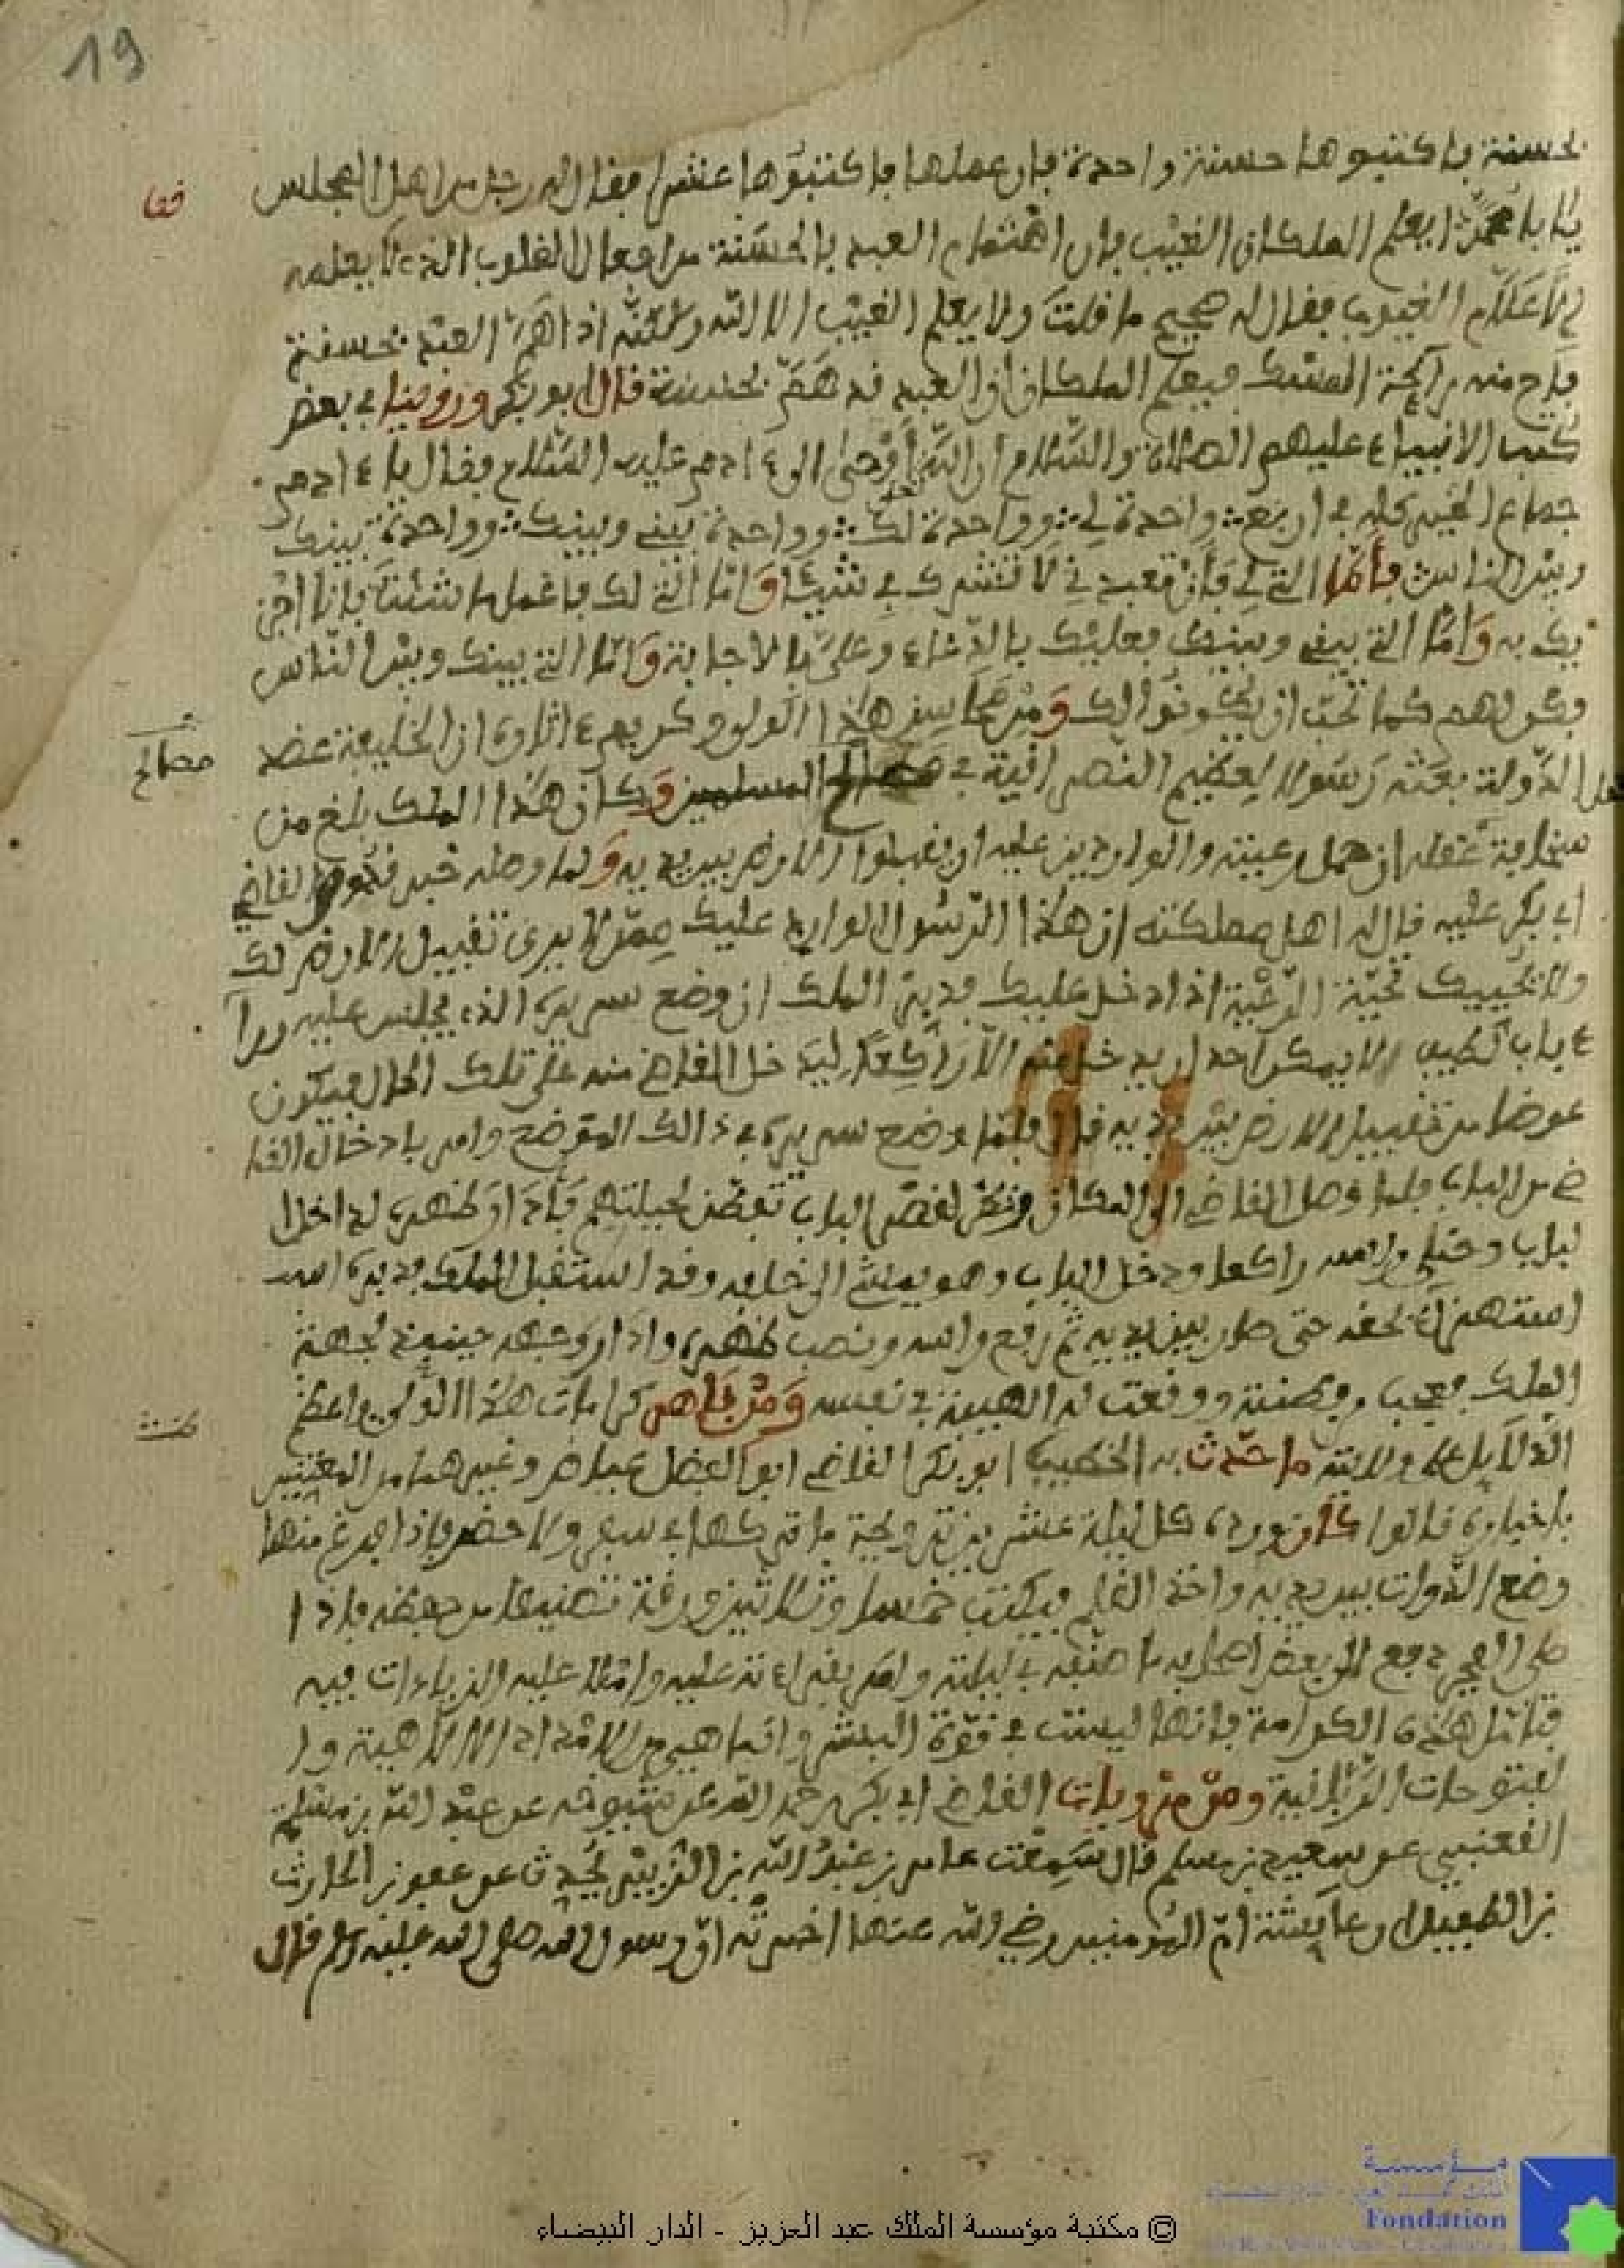 19
بحسنة فاكتبوها حسنة واحدة فان عملها فاكتبوها عشرا فقال له رجل من اهل المجلس
يا با محمد ايعلم الملكان الغيب فان اهتمام العبد بالحسنة من افعال القلوب الذي لا يعلمه
الا علام الغيوب فقال له صحيح ما قلت ولا يعلم الغيب الا الله ولكنه اذا هم العبد بحسنة
فاح منه رائحة المسك فيعلم الملكان ان العبد قد هم بحسنة قال ابو بكر وروينا في بعض
كتب الانبياء عليهم الصلاة والسلام ان الله اوحى الى ءادم عليه السلام فقال يا ءادم
جماع الخير كله في اربع واحدة لي وواحدة لك وواحدة بيني وبينك وواحدة بينك
وبين الناس فاما التي لي فان تعبدني لا تشرك بي شيئا واما التي لك فاعمل ما شئت فانا اجز
يك به واما التي بيني وبينك فعليك بالدعاء وعلي بالاجابة واما التي بينك وبين الناس
فكن لهم كما تحب ان يكونوا لك ومن محاسن هذا الولي وكريم ءاثاره ان الخليفة عضد
الدولة بعثه رسولا لعظيم النصرانية في مصالح المسلمين وكان هذا الملك بلغ من
مصالح
سخافة عقله ان حمل رعيته والواردين عليه ان يقبلوا الارض بين يديه ولما وصله خبر قدوم القاضي
ابي بكر عليه قال له اهل مملكته ان هذا الرسول الوارد عليك ممن لا يرى تقبيل الارض لك
ولا تحييك تحية الرعية اذا دخل عليك فدبر الملك ان وضع سريره الذي يجلس عليه ورا
ء باب لطيف لا يمكن احدا ان يدخل منه الا راكعا ليدخل القاضي منه على تلك الحال فيكون
عوضا من تقبيل الارض بين يديه قال فلما وضع سريره في ذالك الموضع وامر بادخال القا
ضي من الباب فلما وصل القاضي الى المكان ونظر لقصر الباب تفطن لحيلتهم فادار ظهره لداخل ا
لباب وحنى راسه راكعا ودخل الباب وهو يمشي الى خلفه وقد استقبل الملك بدبره
استهزاء بحقه حتى صار بين يديه ثم رفع راسه ونصب ظهره وادار وجهه حينئذ لجهة
الملك فعجب من فطنته ووقعت له الهيبة في نفسه ومن باهر كرامات هذا الولي واعظم
الدلائل على ولايته ما حدث به الخطيب ابو بكر القاضي ابو الفضل عياض وغيرهما من المعتنين
باخباره قالوا كان ورده كل ليلة عشرين ترويحة ما تركها في سفر ولا حضر فاذا فرغ منها
وضع الدوات بين يديه واخذ القلم فيكتب خمسا وثلاثين ورقة تصنيفا من حفظه فاذا
صلى الفجر دفع الى بعض اصحابه ما صنفه في ليلته وامره بقراءته عليه واملا عليه الزياءات فيه
فتامل هذه الكرامة فانها ليست في قوة البشر وانما هي من الامداد الالاهية وا
لفتوحات الربانية ومن مرويات القاضي ابي بكر رحمه الله عن شيوخه عن عبد الله بن مسلمة
القعنبي عن سعيد بن مسلم قال سمعت عامر بن عبد الله بن الزبير يحدث عن عوف بن الحارث
بن الطفيل ان عائشة ام المؤمنين رضي الله عنها اخبرته ان رسول الله صلى الله عليه وسلم قال
© مكتبة مؤسسة الملك عبد العزيز - الدار البيضاء
مؤسسة
Fondation